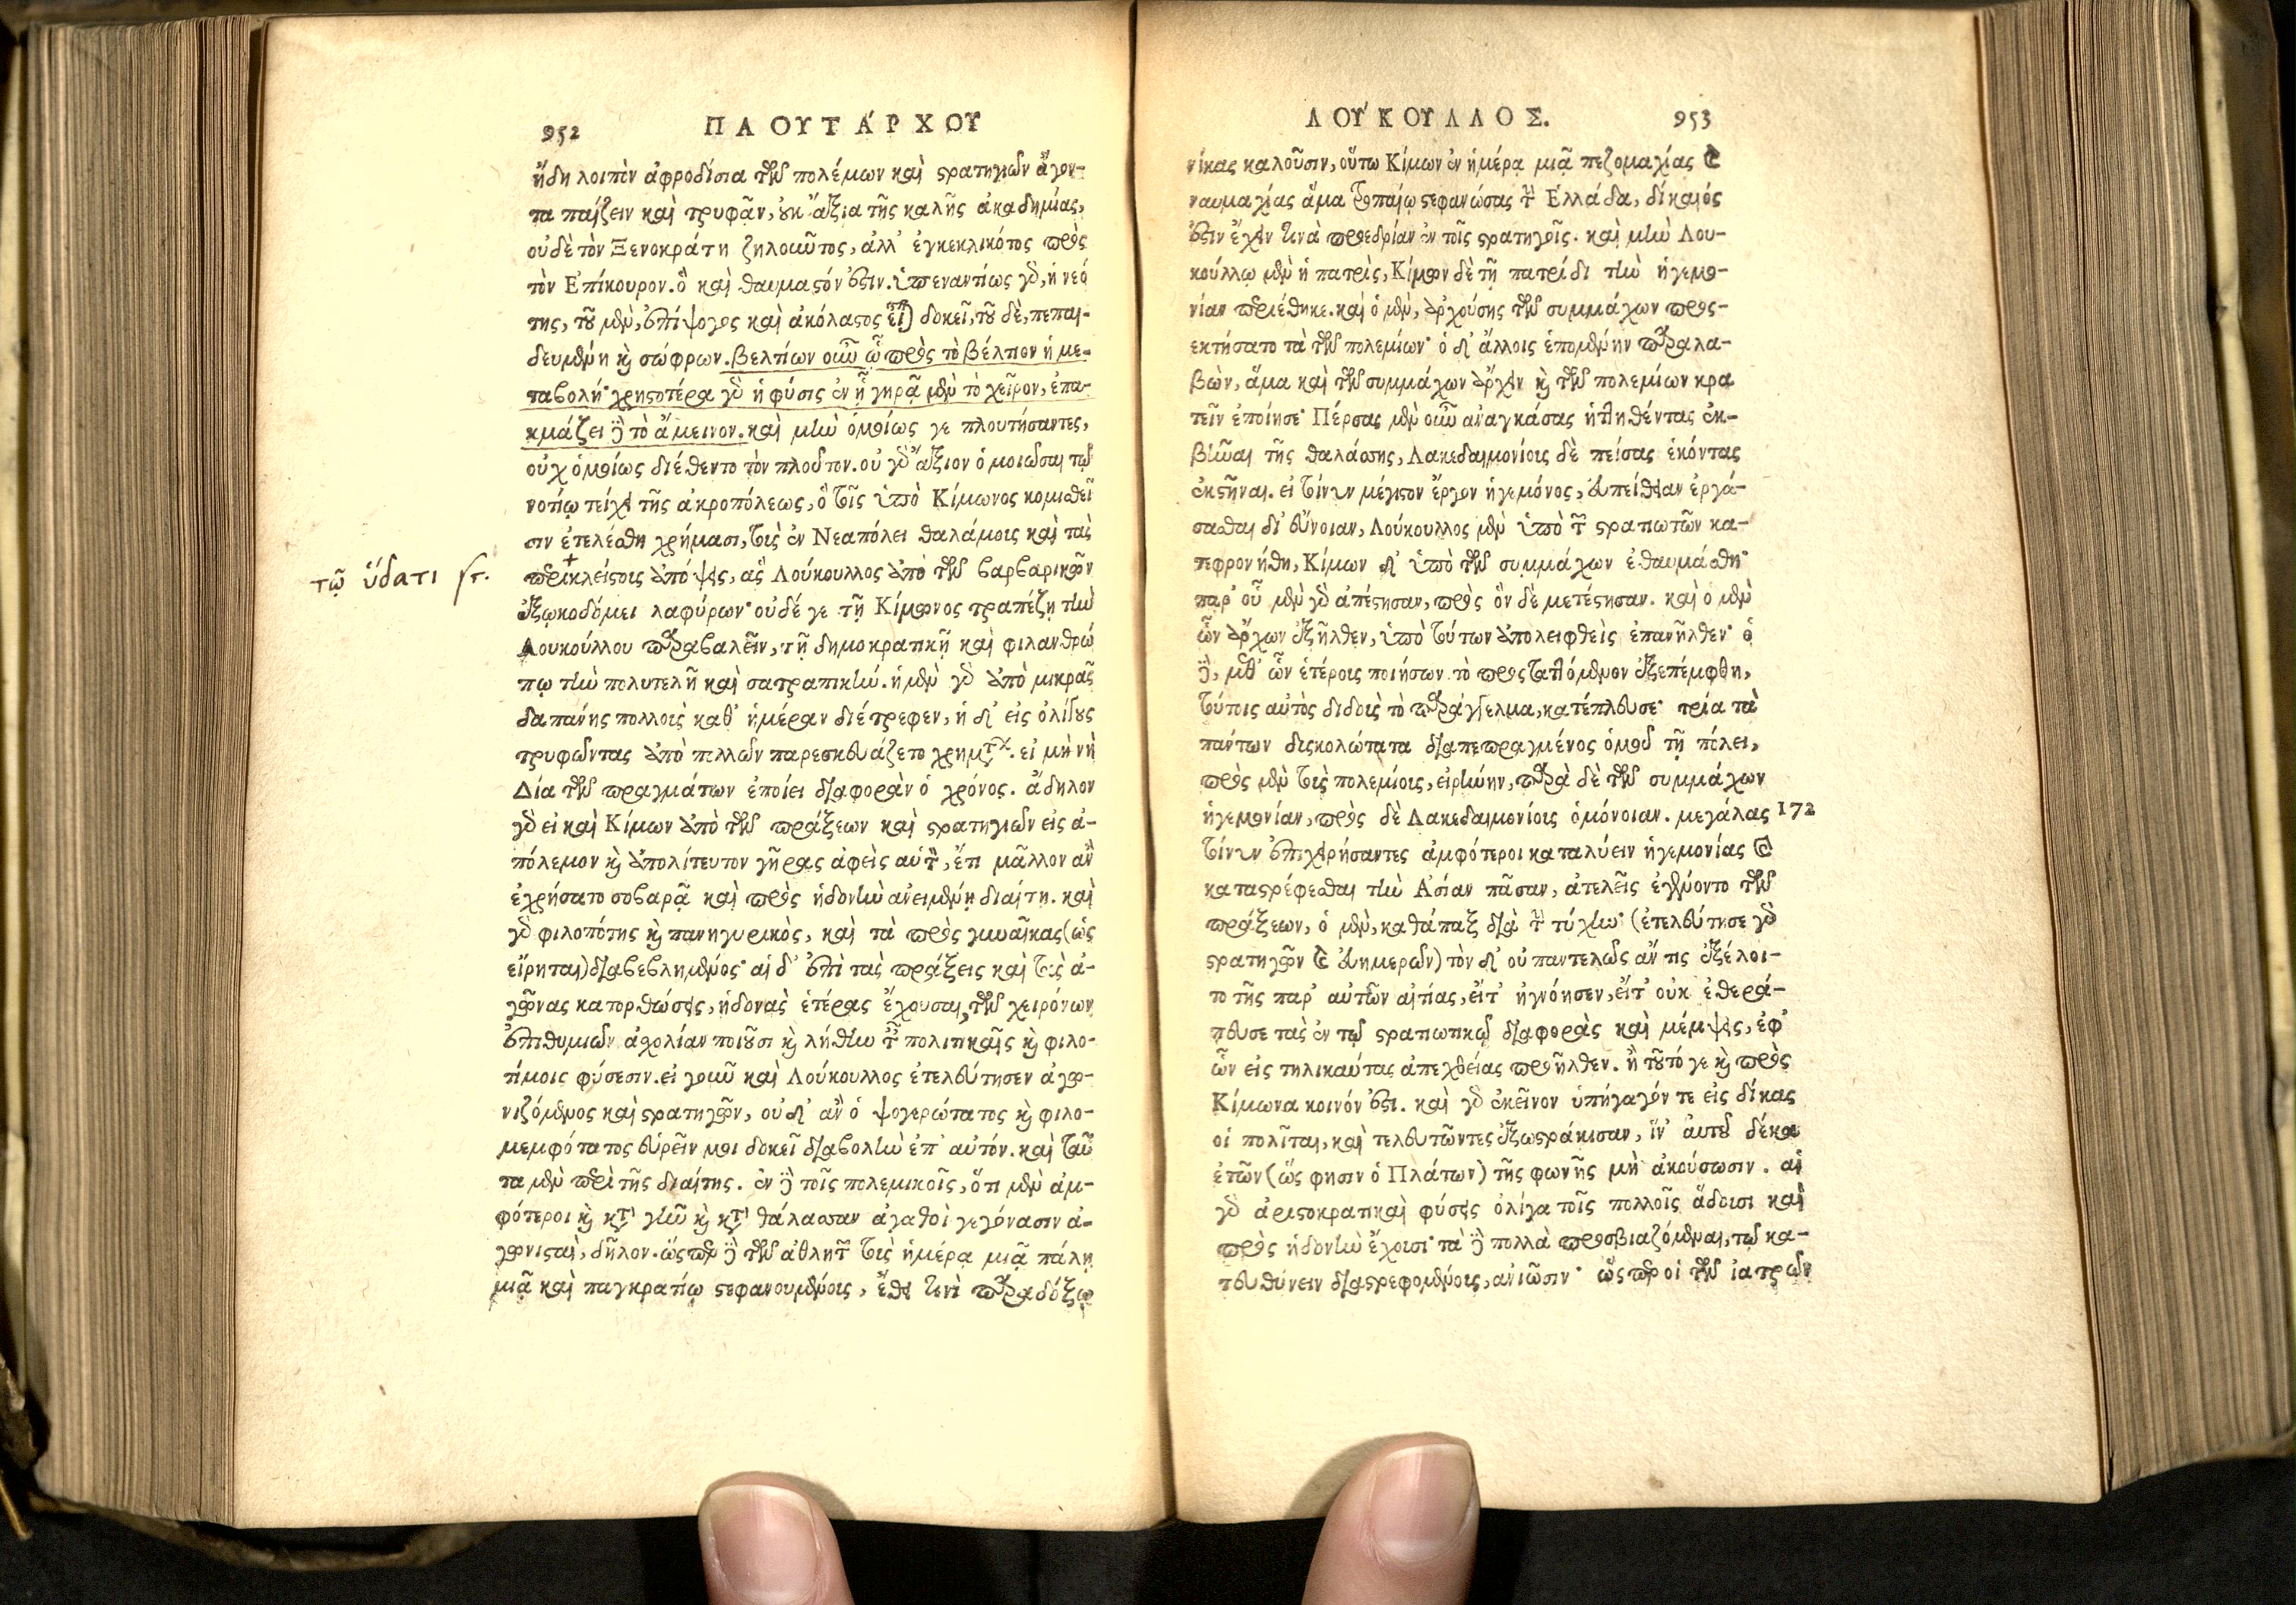 952 ΠΛΟΥΤΆΡΧΟΥ
ἤδη λοιπὸν ἀφροδίσια τῶν πολέμων καὶ στρατηγιῶν ἄγον-
τα παίζειν καὶ τρυφᾶν, οὐκ ἄξια τῆς καλῆς ἀκαδημίας,
οὐδὲ τὸν Ξενοκράτη ζηλοῦντος, ἀλλ' ἐγκεκλικότος πρὸς
τὸν Ἐπίκουρον. ὃ καὶ θαυμαστόν ἐστιν. ὑπεναντίως γὰρ, ἡ νεό
της, τοῦ μὲν, ἐπίψογος καὶ ἀκόλαστος εἶναι δοκεῖ, τοῦ δὲ, πεπαι-
δευμένη καὶ σώφρων. βελτίων οὖν ᾧ πρὸς τὸ βέλτιον ἡ με-
ταβολή· χρηστοτέρα γὰρ ἡ φύσις ἐν ᾗ γηρᾷ μὲν τὸ χεῖρον, ἐπα-
κμάζει δὲ τὸ ἄμεινον. καὶ μὴν ὁμοίως γε πλουτήσαντες,
οὐχ ὁμοίως διέθεντο τὸν πλοῦτον. οὐ γὰρ ἄξιον ὁμοιῶσαι τῷ
νοτίῳ τείχει τῆς ἀκροπόλεως, ὃ τοῖς ὑπὸ Κίμωνος κομισθεῖ
σιν ἐτελέσθη χρήμασι, τοὺς ἐν Νεαπόλει θαλάμους καὶ τὰς
τῷ ὕδατι στ.
περικλείστους ἀπόψεις, ἃς Λούκουλλος ἀπὸ τῶν βαρβαρικῶν
ἐξῳκοδόμει λαφύρων· οὐδέ γε τῇ Κίμωνος τραπέζῃ τὴν
Λουκούλλου παραβαλεῖν, τῇ δημοκρατικῇ καὶ φιλανθρώ
πῳ τὴν πολυτελῆ καὶ σατραπικήν. ἡ μὲν γὰρ ἀπὸ μικρᾶς
δαπάνης πολλοὺς καθ' ἡμέραν διέτρεφεν, ἡ δ' εἰς ὀλίγους
τρυφῶντας ἀπὸ πολλῶν παρεσκευάζετο χρημάτων. εἰ μὴ νὴ
Δία τῶν πραγμάτων ἐποίει διαφορὰν ὁ χρόνος. ἄδηλον
γὰρ εἰ καὶ Κίμων ἀπὸ τῶν πράξεων καὶ στρατηγιῶν εἰς ἀ-
πόλεμον καὶ ἀπολίτευτον γῆρας ἀφεὶς αὑτὸν, ἔτι μᾶλλον ἂν
ἐχρήσατο σοβαρᾷ καὶ πρὸς ἡδονὴν ἀνειμένῃ διαίτῃ. καὶ
γὰρ φιλοπότης καὶ πανηγυρικὸς, καὶ τὰ πρὸς γυναῖκας (ὡς
εἴρηται) διαβεβλημένος· αἱ δ' ἐπὶ τὰς πράξεις καὶ τοὺς ἀ-
γῶνας κατορθώσεις, ἡδονὰς ἑτέρας ἔχουσαι, τῶν χειρόνων
ἐπιθυμιῶν ἀσχολίαν ποιοῦσι καὶ λήθην ταῖς πολιτικαῖς καὶ φιλο-
τίμοις φύσεσιν. εἰ γοῦν καὶ Λούκουλλος ἐτελεύτησεν ἀγω-
νιζόμενος καὶ στρατηγῶν, οὐδ' ἂν ὁ ψογερώτατος καὶ φιλο-
μεμφότατος εὑρεῖν μοι δοκεῖ διαβολὴν ἐπ' αὐτόν. καὶ ταῦ
τα μὲν περὶ τῆς διαίτης. ἐν δὲ τοῖς πολεμικοῖς, ὅτι μὲν ἀμ-
φότεροι καὶ κατὰ γῆν καὶ κατὰ θάλασσαν ἀγαθοὶ γεγόνασιν ἀ-
γωνισταὶ, δῆλον. ὥσπερ δὲ τῶν ἀθλητῶν τοὺς ἡμέρᾳ μιᾷ πάλῃ
μιᾷ καὶ παγκρατίῳ στεφανουμένους, ἔθει τινὶ παραδόξω
ΛΟΎΚΟΥΛΛΟΣ. 953
νίκας καλοῦσιν, οὕτω Κίμων ἐν ἡμέρᾳ μιᾷ πεζομαχίας καὶ
ναυμαχίας ἅμα τροπαίῳ στεφανώσας τὴν Ἑλλάδα, δίκαιός
ἐστιν ἔχειν τινὰ προεδρίαν ἐν τοῖς στρατηγοῖς. καὶ μὴν Λου-
κούλλῳ μὲν ἡ πατρὶς, Κίμων δὲ τῇ πατρίδι τὴν ἡγεμο-
νίαν περιέθηκε. καὶ ὁ μὲν, ἀρχούσης τῶν συμμάχων προσ-
εκτήσατο τὰ τῶν πολεμίων· ὁ δ' ἄλλοις ἑπομένην παραλα-
βὼν, ἅμα καὶ τῶν συμμάχων ἄρχειν καὶ τῶν πολεμίων κρα
τεῖν ἐποίησε· Πέρσας μὲν οὖν ἀναγκάσας ἡττηθέντας ἐκ-
βῆναι τῆς θαλάσσης, Λακεδαιμονίους δὲ πείσας ἑκόντας
ἐκστῆναι. εἰ τοίνυν μέγιστον ἔργον ἡγεμόνος, εὐπείθειαν ἐργά-
σασθαι δι' εὔνοιαν, Λούκουλλος μὲν ὑπὸ τῶν στρατιωτῶν κα-
τεφρονήθη, Κίμων δ' ὑπὸ τῶν συμμάχων ἐθαυμάσθη·
παρ' οὗ μὲν γὰρ ἀπέστησαν, πρὸς ὃν δὲ μετέστησαν. καὶ ὁ μὲν
ὧν ἄρχων ἐξῆλθεν, ὑπὸ τούτων ἀπολειφθεὶς ἐπανῆλθεν· ὁ
δὲ, μεθ' ὧν ἑτέροις ποιήσων τὸ προσταττόμενον ἐξεπέμφθη,
τούτοις αὐτὸς διδοὺς τὸ παράγγελμα, κατέπλευσε· τρία τὰ
πάντων δυσκολώτατα διαπεπραγμένος ὁμοῦ τῇ πόλει,
πρὸς μὲν τοὺς πολεμίους, εἰρήνην, παρὰ δὲ τῶν συμμάχων
ἡγεμονίαν, πρὸς δὲ Λακεδαιμονίους ὁμόνοιαν. μεγάλας 172
τοίνυν ἐπιχειρήσαντες ἀμφότεροι καταλύειν ἡγεμονίας καὶ
καταστρέφεσθαι τὴν Ἀσίαν πᾶσαν, ἀτελεῖς ἐγένοντο τῶν
πράξεων, ὁ μὲν, καθάπαξ διὰ τὴν τύχην· (ἐτελεύτησε γὰρ
στρατηγῶν καὶ εὐημερῶν) τὸν δ' οὐ παντελῶς ἄν τις ἐξέλοι-
το τῆς παρ' αὐτῶν αἰτίας, εἴτ' ἠγνόησεν, εἴτ' οὐκ ἐθερά-
πευσε τὰς ἐν τῷ στρατιωτικῷ διαφορὰς καὶ μέμψεις, ἐφ'
ὧν εἰς τηλικαύτας ἀπεχθείας προῆλθεν. ἢ τοῦτό γε καὶ πρὸς
Κίμωνα κοινόν ἐστι. καὶ γὰρ ἐκεῖνον ὑπήγαγόν τε εἰς δίκας
οἱ πολῖται, καὶ τελευτῶντες ἐξωστράκισαν, ἵν' αὐτοῦ δέκα
ἐτῶν (ὥς φησιν ὁ Πλάτων) τῆς φωνῆς μὴ ἀκούσωσιν. αἱ
γὰρ ἀριστοκρατικαὶ φύσεις ὀλίγα τοῖς πολλοῖς ᾄδουσι καὶ
πρὸς ἡδονὴν ἔχουσι· τὰ δὲ πολλὰ προσβιαζόμεναι, τῷ κα-
τευθύνειν διαστρεφομένους, ἀνιῶσιν· ὥσπερ οἱ τῶν ἰατρῶν